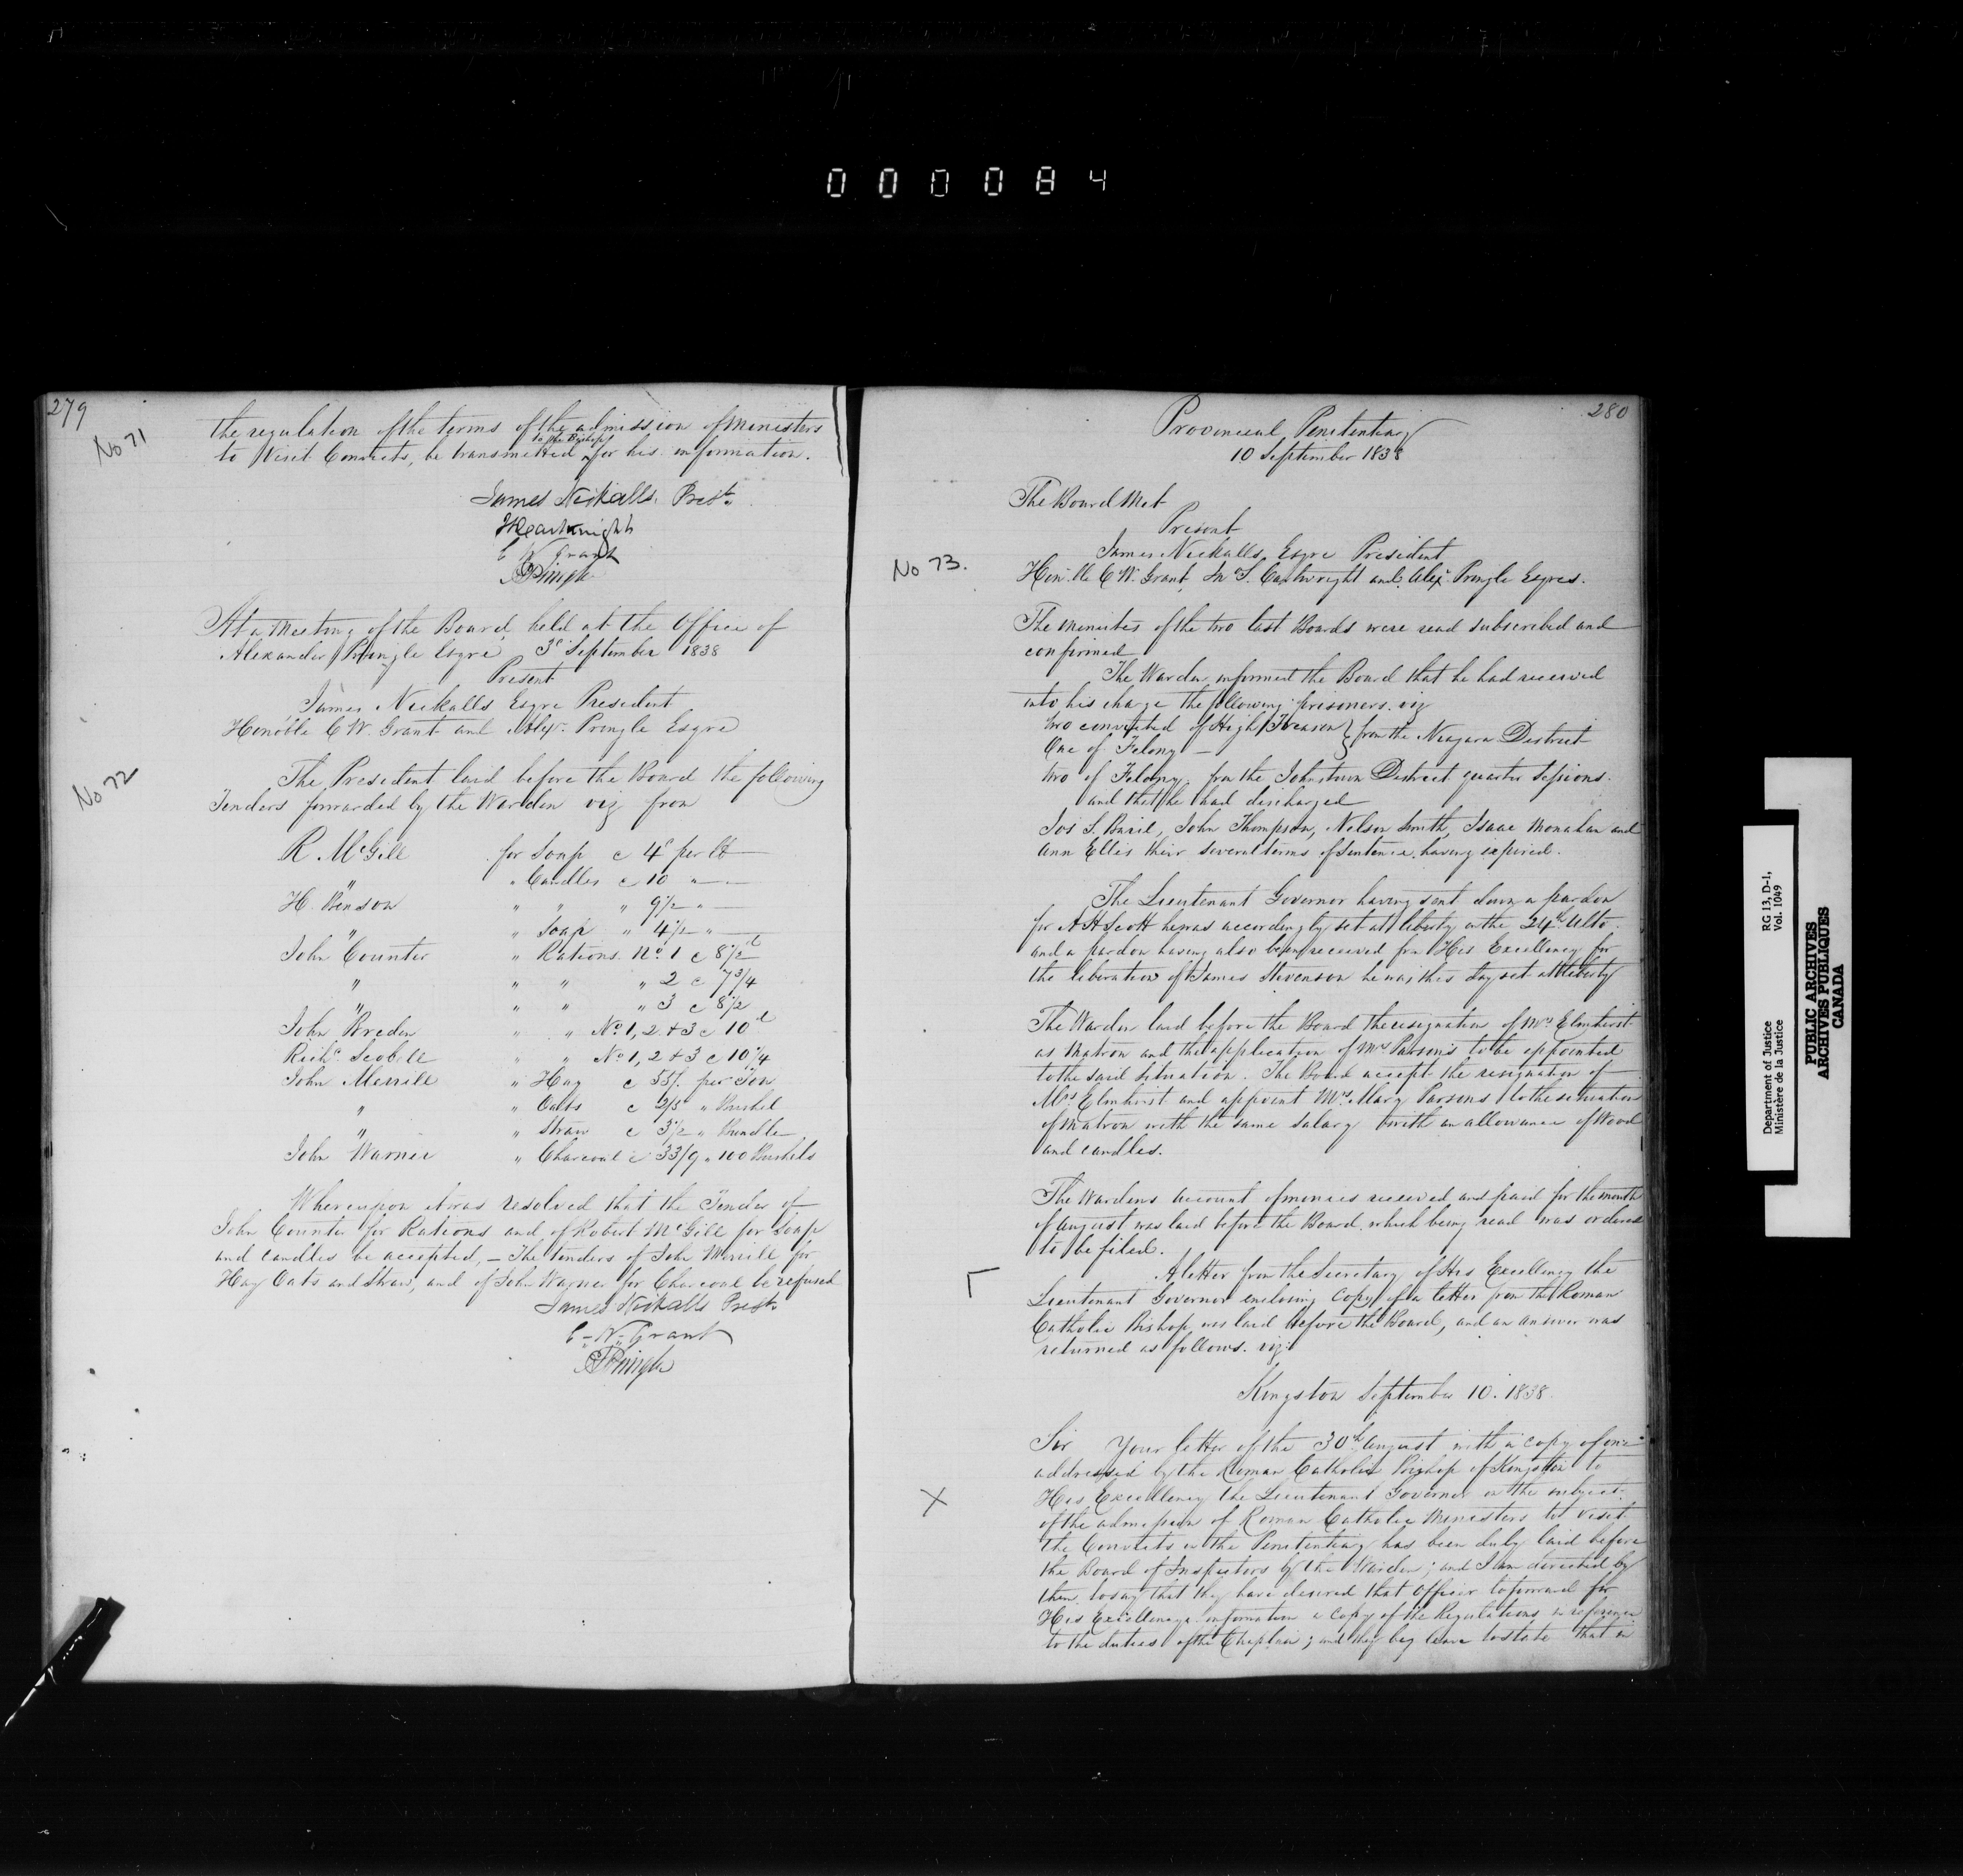 000084
279
No 71
the regulation of the terms of the admission of Ministers
to Visit Convicts, be transmitted to the Bishop for his information.
James Nickalls Presdt.
JS Cartwright
C W Grant
A Pringle
At a Meeting of the Board held at the Office of
Alexander Pringle Esqre 3d September 1838
Present
James Nickalls Esqre President
Hon'ble C W. Grant and Alexr. Pringle Esqre
No 72
The President laid before the Board the following
Tenders forwarded by the Warden viz from
R McGill for Soap @ 4d per lb
" " Candles @ 10 "
H. Benson " " " 9 1/2 "
" " Soap " 4 1/2 "
John Counter " Rations No 1 @ 8 1/2 d
" " " " 2 @ 7 3/4
" " " " 3 @ 8 1/2
John Breden " " No 1, 2 & 3 @ 10d
Richd. Scobell " " No 1, 2 & 3 @ 10 1/4
John Merrill " Hay @ 55/. per Ton
" " Oats @ 2/5 " Bushel
" " Straw @ 3 1/2 " Bundle
John Warner " Charcoal @ 33/9 " 100 Bushels
Whereupon it was resolved that the Tender of
John Counter for Rations and of Robert McGill for Soap
and candles be accepted, – The tenders of John Merrill for
Hay Oats and Straw, and of John Warner for Charcoal be refused
James Nickalls Presdt
C. W. Grant
A Pringle
280
Provincial Penitentiary
10 September 1838
The Board Met
Present
James Nickalls, Esqre President
No 73.
Hon'ble C W. Grant, Jn S. Cartwright and Alexr. Pringle Esqres.
The minutes of the two last Boards were read subscribed and
confirmed
The Warden informed the Board that he had received
into his charge the following prisoners. viz
two convicted of High Treason } from the Niagara District
One of Felony —
two of Felony. from the Johnstown District quarter Sessions.
and that he had discharged
Jos S. Basil, John Thompson, Nelson Smith, Isaac Monahan and
Ann Ellis their several terms of sentence having expired.
The Lieutenant Governor having sent down a pardon
for A H Scott he was accordingly set at liberty on the 24th Ulto.
and a pardon having also been received from His Excellency for
the liberation of James Stevenson he was this day set at liberty
The Warden laid before the Board the resignation of Mrs Elmhirst
as Matron and the application of Mrs Parsons to be appointed
to the said situation. The Board accept the resignation of
Mrs Elmhirst and appoint Mrs Mary Parsons to the situation
of Matron with the same salary & with an allowance of Wood
and candles.
The Wardens account of monies received and paid for the month
of August was laid before the Board, which being read was ordered
to be filed.
A letter from the Secretary of His Excellency the
Lieutenant Governor enclosing Copy of a letter from the Roman
Catholic Bishop was laid before the Board, and an answer was
returned as follows. viz.
Kingston September 10. 1838.
Sir Your letter of the 30th August with a copy of one
addressed by the Roman Catholic Bishop of Kingston to
X
His Excellency the Lieutenant Governor on the subject
of the admission of Roman Catholic Ministers to visit
the Convicts in the Penitentiary has been duly laid before
the Board of Inspectors by the Warden; and I am directed by
them to say that they have desired that Officer to forward for
His Excellency's information a copy of the Regulations in reference
to the duties of the Chaplain; and they beg leave to state that in
Department of Justice RG 13, D-1,
Ministère de la Justice Vol. 1049
PUBLIC ARCHIVES
ARCHIVES PUBLIQUES
CANADA